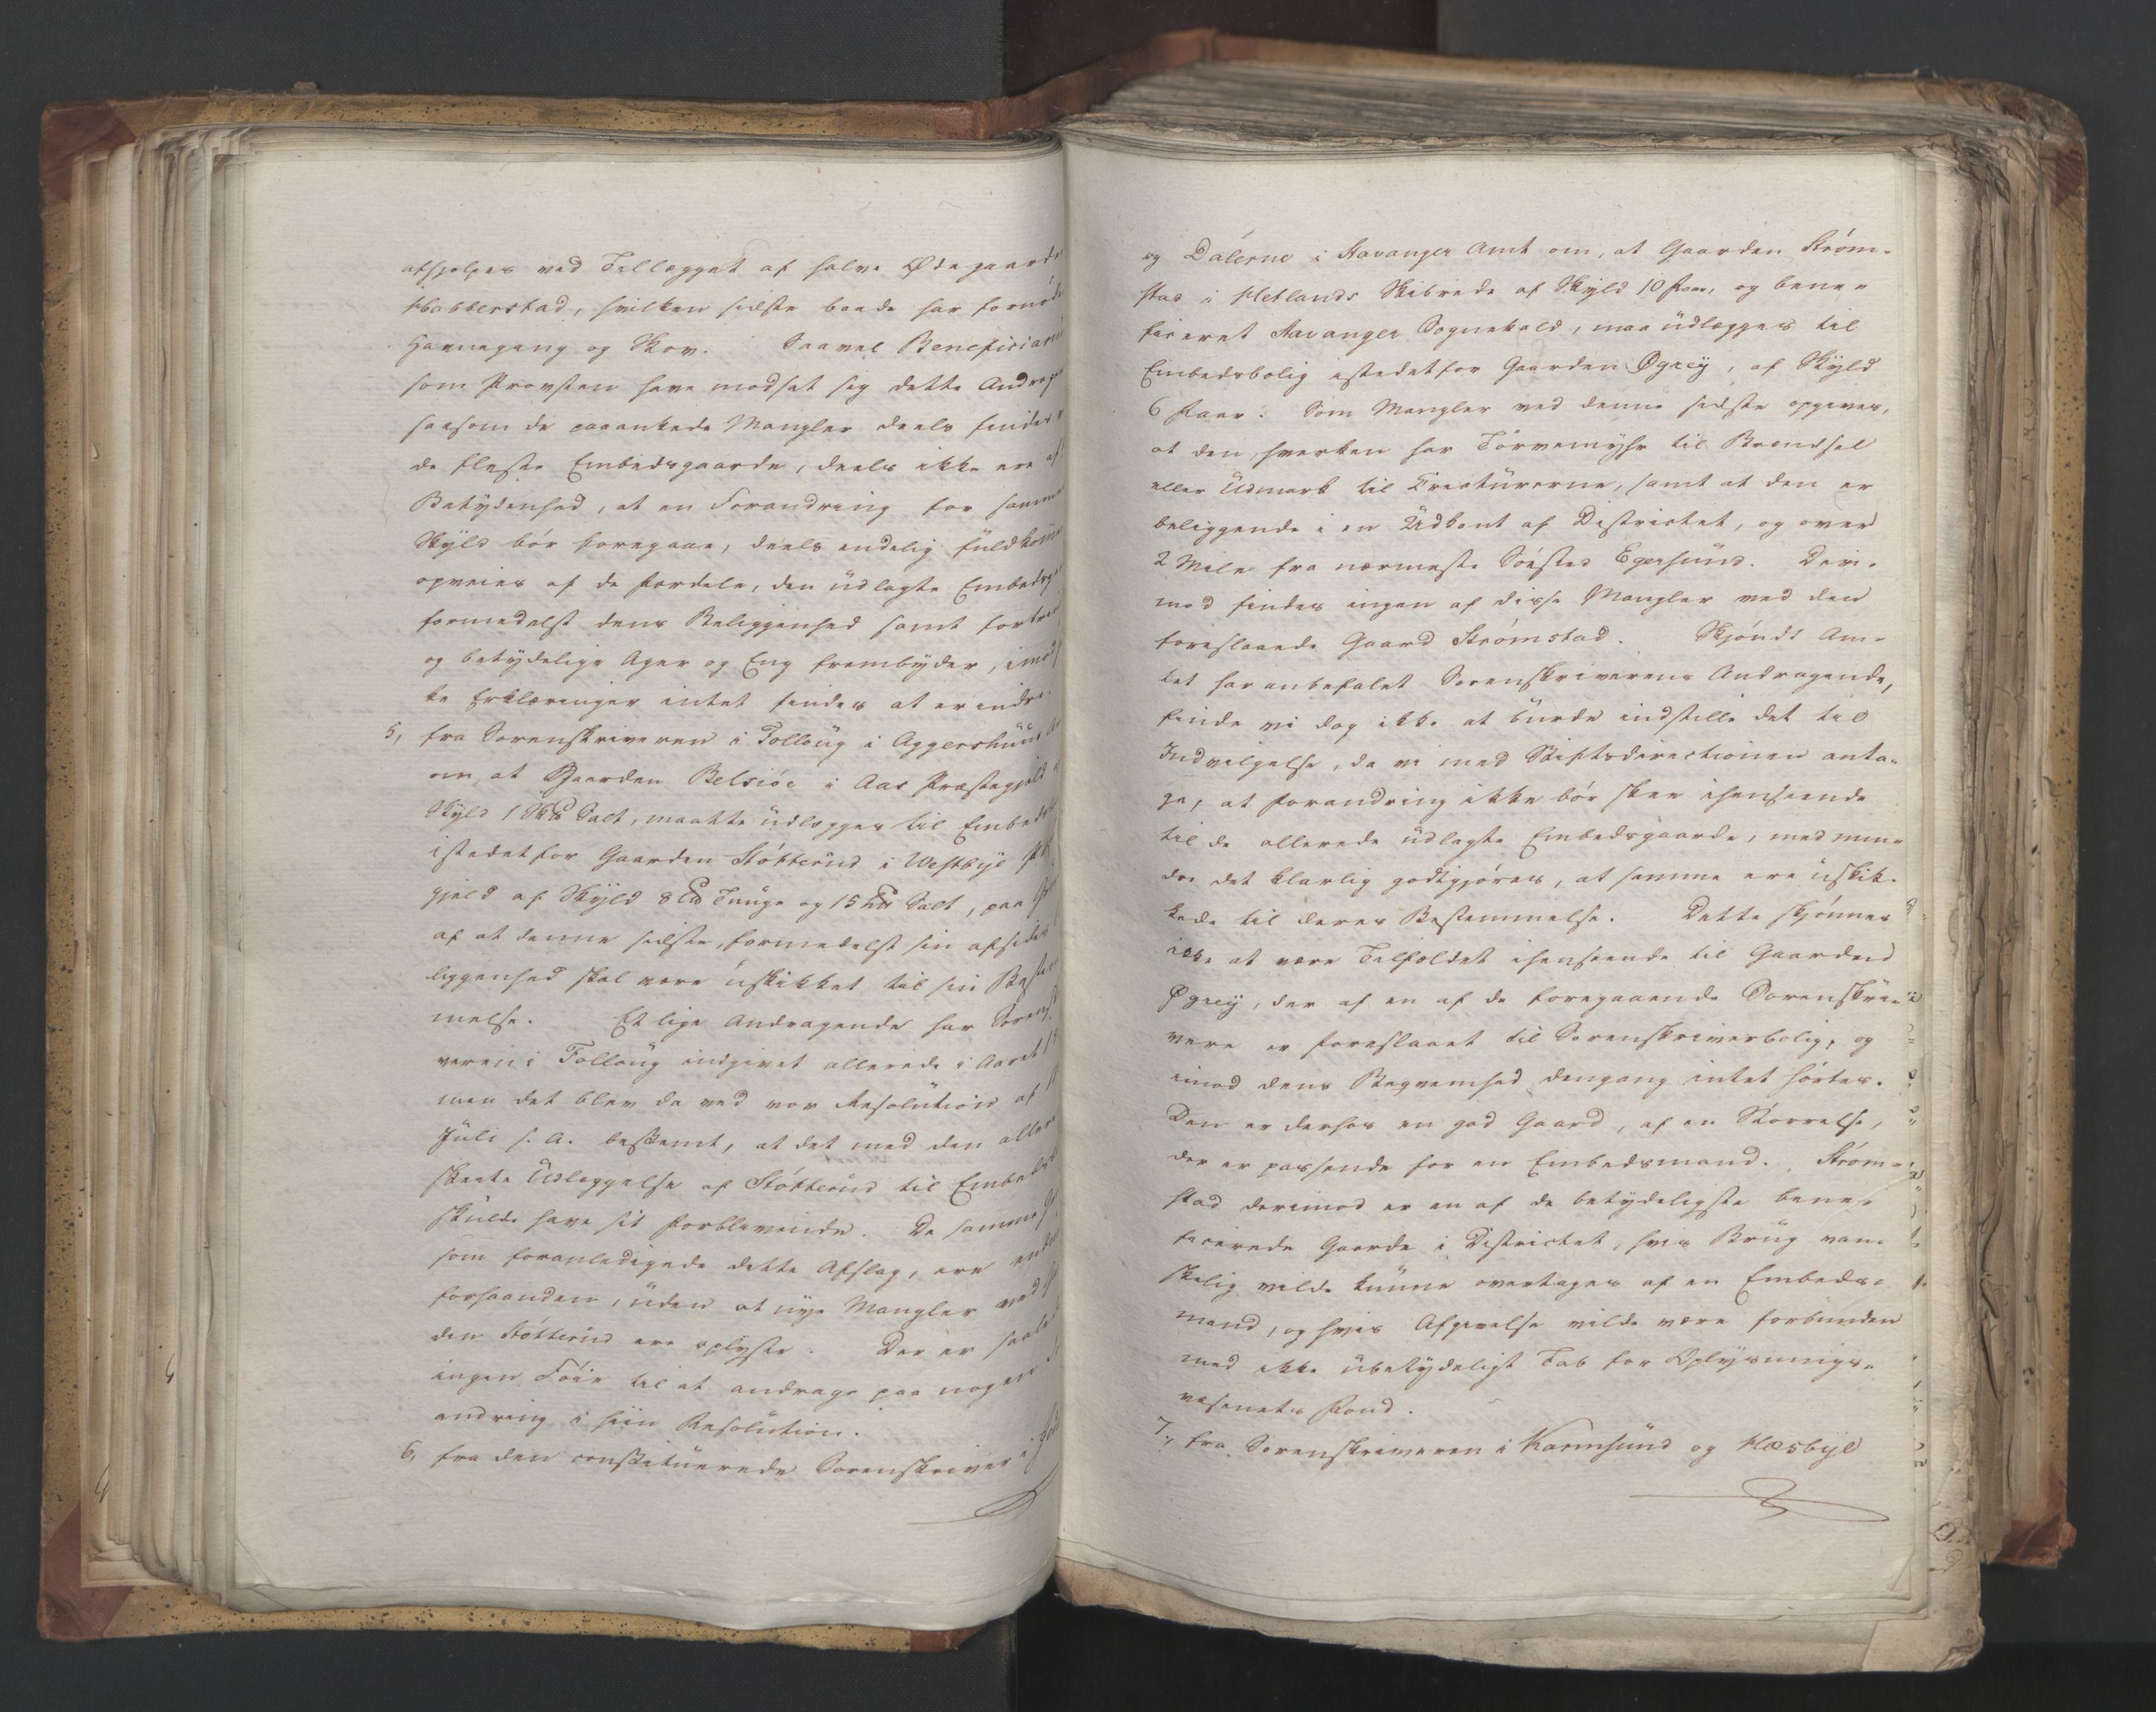 afhjelpes ved Tillægget af halve Ødegaarde
Habberstad, hvilken sidste baade har fornøden
Havnegang og Skov. Saavel Beneficiarius
som Provsten have modsat sig dette Andragende
saasom de paaankede Mangler deels findes
de fleste Embedsgaarde, deels ikke ere af
Betydenhed, at en Forandring for samme
Skyld bór foregaae, deels endelig fuldkomme
opveies af de Fordele, den udlagte Embedsg
formedelst dens Beliggenhed samt fortri
og betydelige Ager og Eng frembyder, imod
ke Erklæringer intet findes at erindre.
5, fra Sorenskriveren i Folloug i Aggershuus
om, at Gaarden Belsiøe i Aas Præstegjeld
Skyld 1 Sk℔ Salt, maatte udlægges til Embeds
istedetfor Gaarden Støtterud i Westbye
gjeld af Skyld 8 L℔ Tunge og 15 L℔ Salt, paa
af at denne sidste, formedelst sin afsides
liggenhed skal være uskikket til sin Bestem
melse. Et lige Andragende har Sorenskri
veren i Follaug indgivet allerede i Aaret 18
men det blev da ved vor Resolution af
Juli s. A. bestemt, at det med den aller
skeete Udlæggelse af Støtterud til Embeds
skulde have sit Forblivende. De samme
som foranledigede dette Afslag, ere endnu
forhaanden, uden at nye Mangler ved
den Støtterud ere oplyste. Der er saale
ingen Föie til at andrage paa nogen
andring i hiin Resolution.
6, fra den constituerede Sorenskriver i
og Dalerne i Stavanger Amt om, at Gaarden Strøm-
stad i Hetlands Skibrede af Skyld 10 Faar, og bene-
ficeret Stavanger Sognekald, maa udlægges til
Embedsbolig istedetfor Gaarden Øgrey, af Skyld
6 Faar. Som Mangler ved denne sidste opgives,
at den hverken har Törvemyhr til Brændsel
eller Udmark til Creaturerne, samt at den er
beliggende i en Udkant af Districtet, og over
2 Mile fra nærmeste Söested Egersund. Deri-
mod findes ingen af disse Mangler ved den
foreslaaede Gaard Strømstad. Skjöndt Am-
tet har anbefalet Sorenskriverens Andragende,
finde vi dog ikke at burde indstille det til
Indvilgelse, da vi med Stiftsdirectionen anta-
ge, at Forandring ikke bör skee ihenseende
til de allerede udlagte Embedsgaarde, med min-
dre det klarlig godtgjöres, at samme ere uskik-
kede til deres Bestemmelse. Dette skjönnes
ikke at være Tilfældet ihenseende til Gaarden
Øgrey, der af en af de foregaaende Sorenskri-
vere er foreslaaet til Sorenskriverbolig, og
imod dens Beqvemhed dengang intet hörtes.
Den er derhos en god Gaard, af en Störrelse,
der er passende for en Embedsmand. Ström-
stad derimod er en af de betydeligste bene-
ficerede Gaarde i Districtet, hvis Brug van-
skelig vilde kunne overtages af en Embeds-
mand, og hvis Afgivelse vilde være forbunden
med ikke ubetydeligt Tab for Oplysnings-
væsenets Fond.
7, fra Sorenskriveren i Karmsund og Hesbye